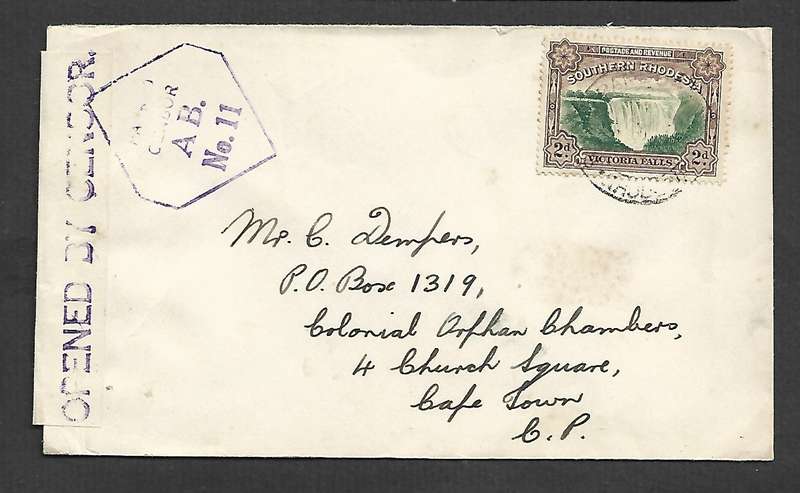 OPENED BY CENSOR.
CENSOR
AB.
No. 11
POSTAGE AND REVENUE
SOUTHERN RHODESIA
2d 2d
VICTORIA FALLS
Mr. C. Dempers,
P.O. Box 1319,
Colonial Orphan Chambers,
4 Church Square,
Cape Town
C.P.